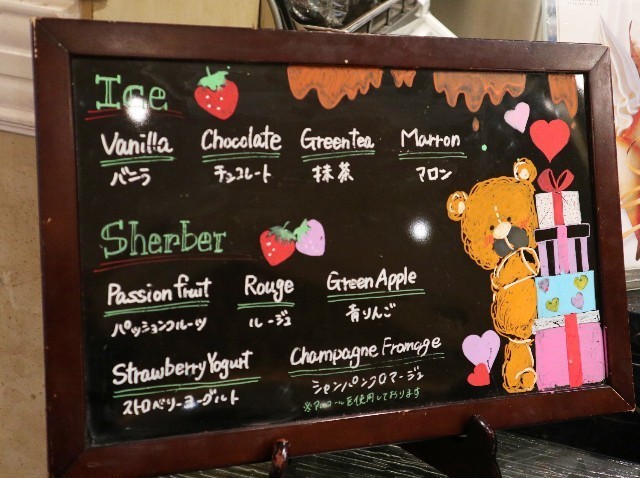 Ice
Vanilla Chocolate Greentea Marron
バニラ チョコレート 抹茶 マロン
Sherber
Passion fruit Rouge Green Apple
パッションフルーツ ルージュ 青りんご
Strawberry Yogurt Champagne Fromage
ストロベリーヨーグルト シャンパンフロマージュ
※アルコールを使用しております